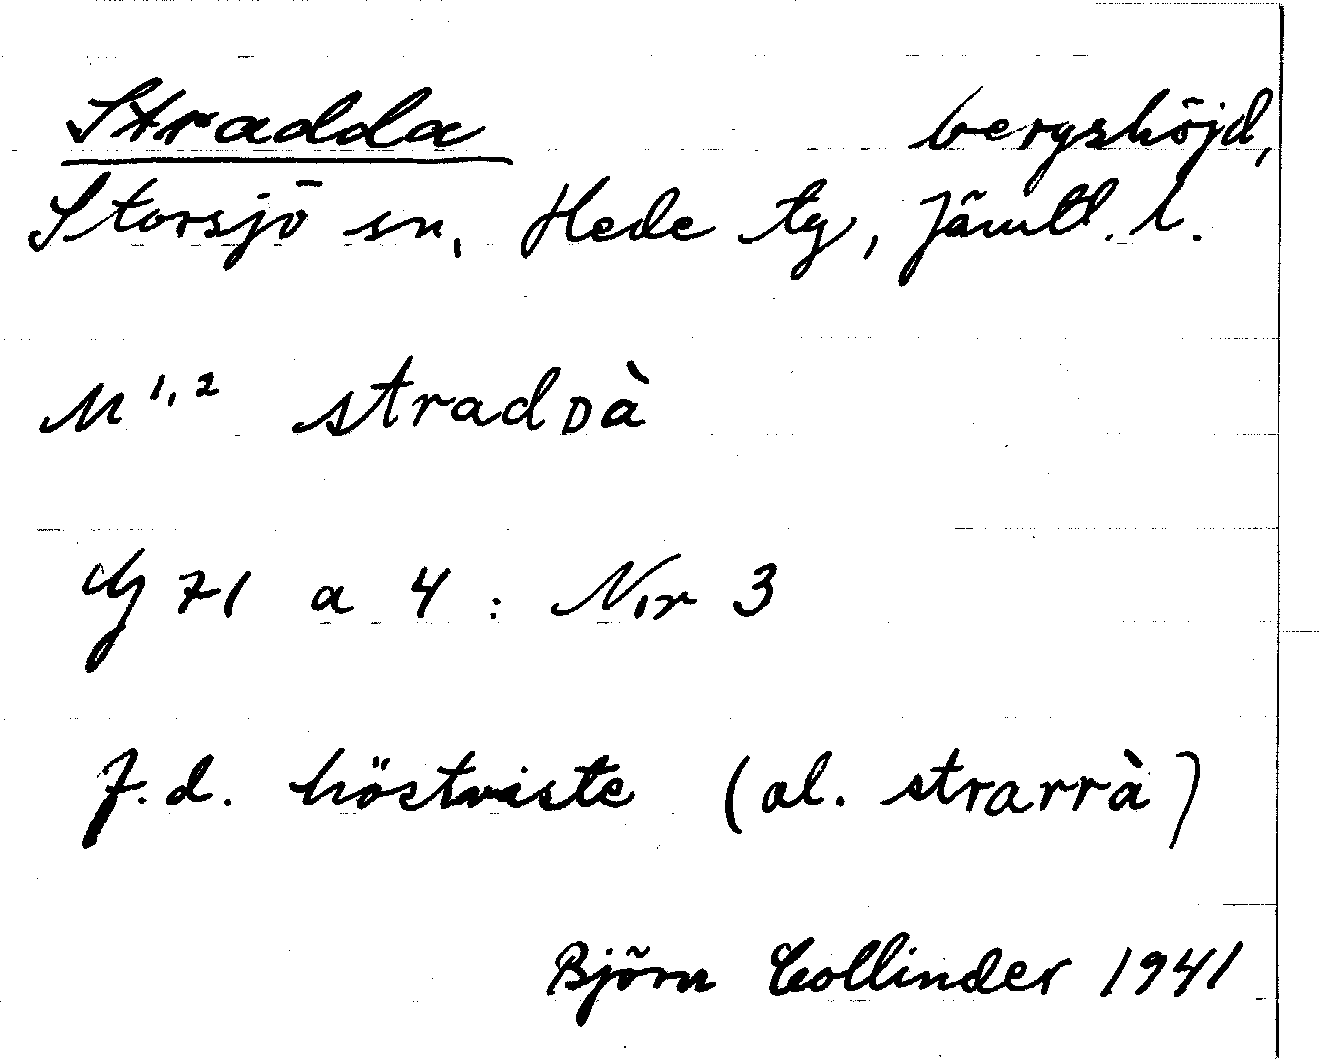 Stradda bergshöjd,
Storsjö sn, Hede tg, Jämtl. l.
M 1, 2 stradDà
Gg 71 a 4 : Nir 3
F.d. höstviste (al. strarrà)
Björn Collinder 1941